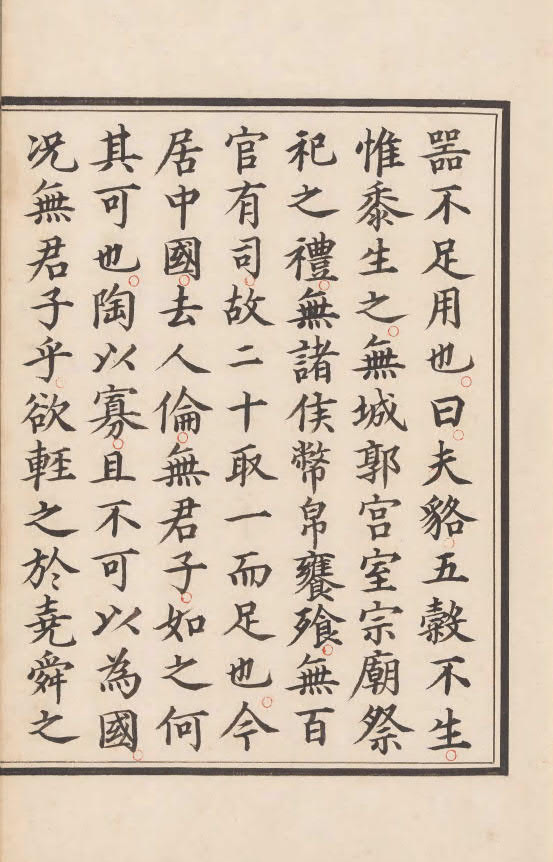 噐不足用也。曰。夫貉。五穀不生。
惟黍生之。無城郭宮室宗廟祭
祀之禮。無諸侯幣帛饔飱。無百
官有司。故二十取一而足也。今
居中國。去人倫。無君子。如之何
其可也。陶以寡。且不可以為國。
況無君子乎。欲輕之於堯舜之